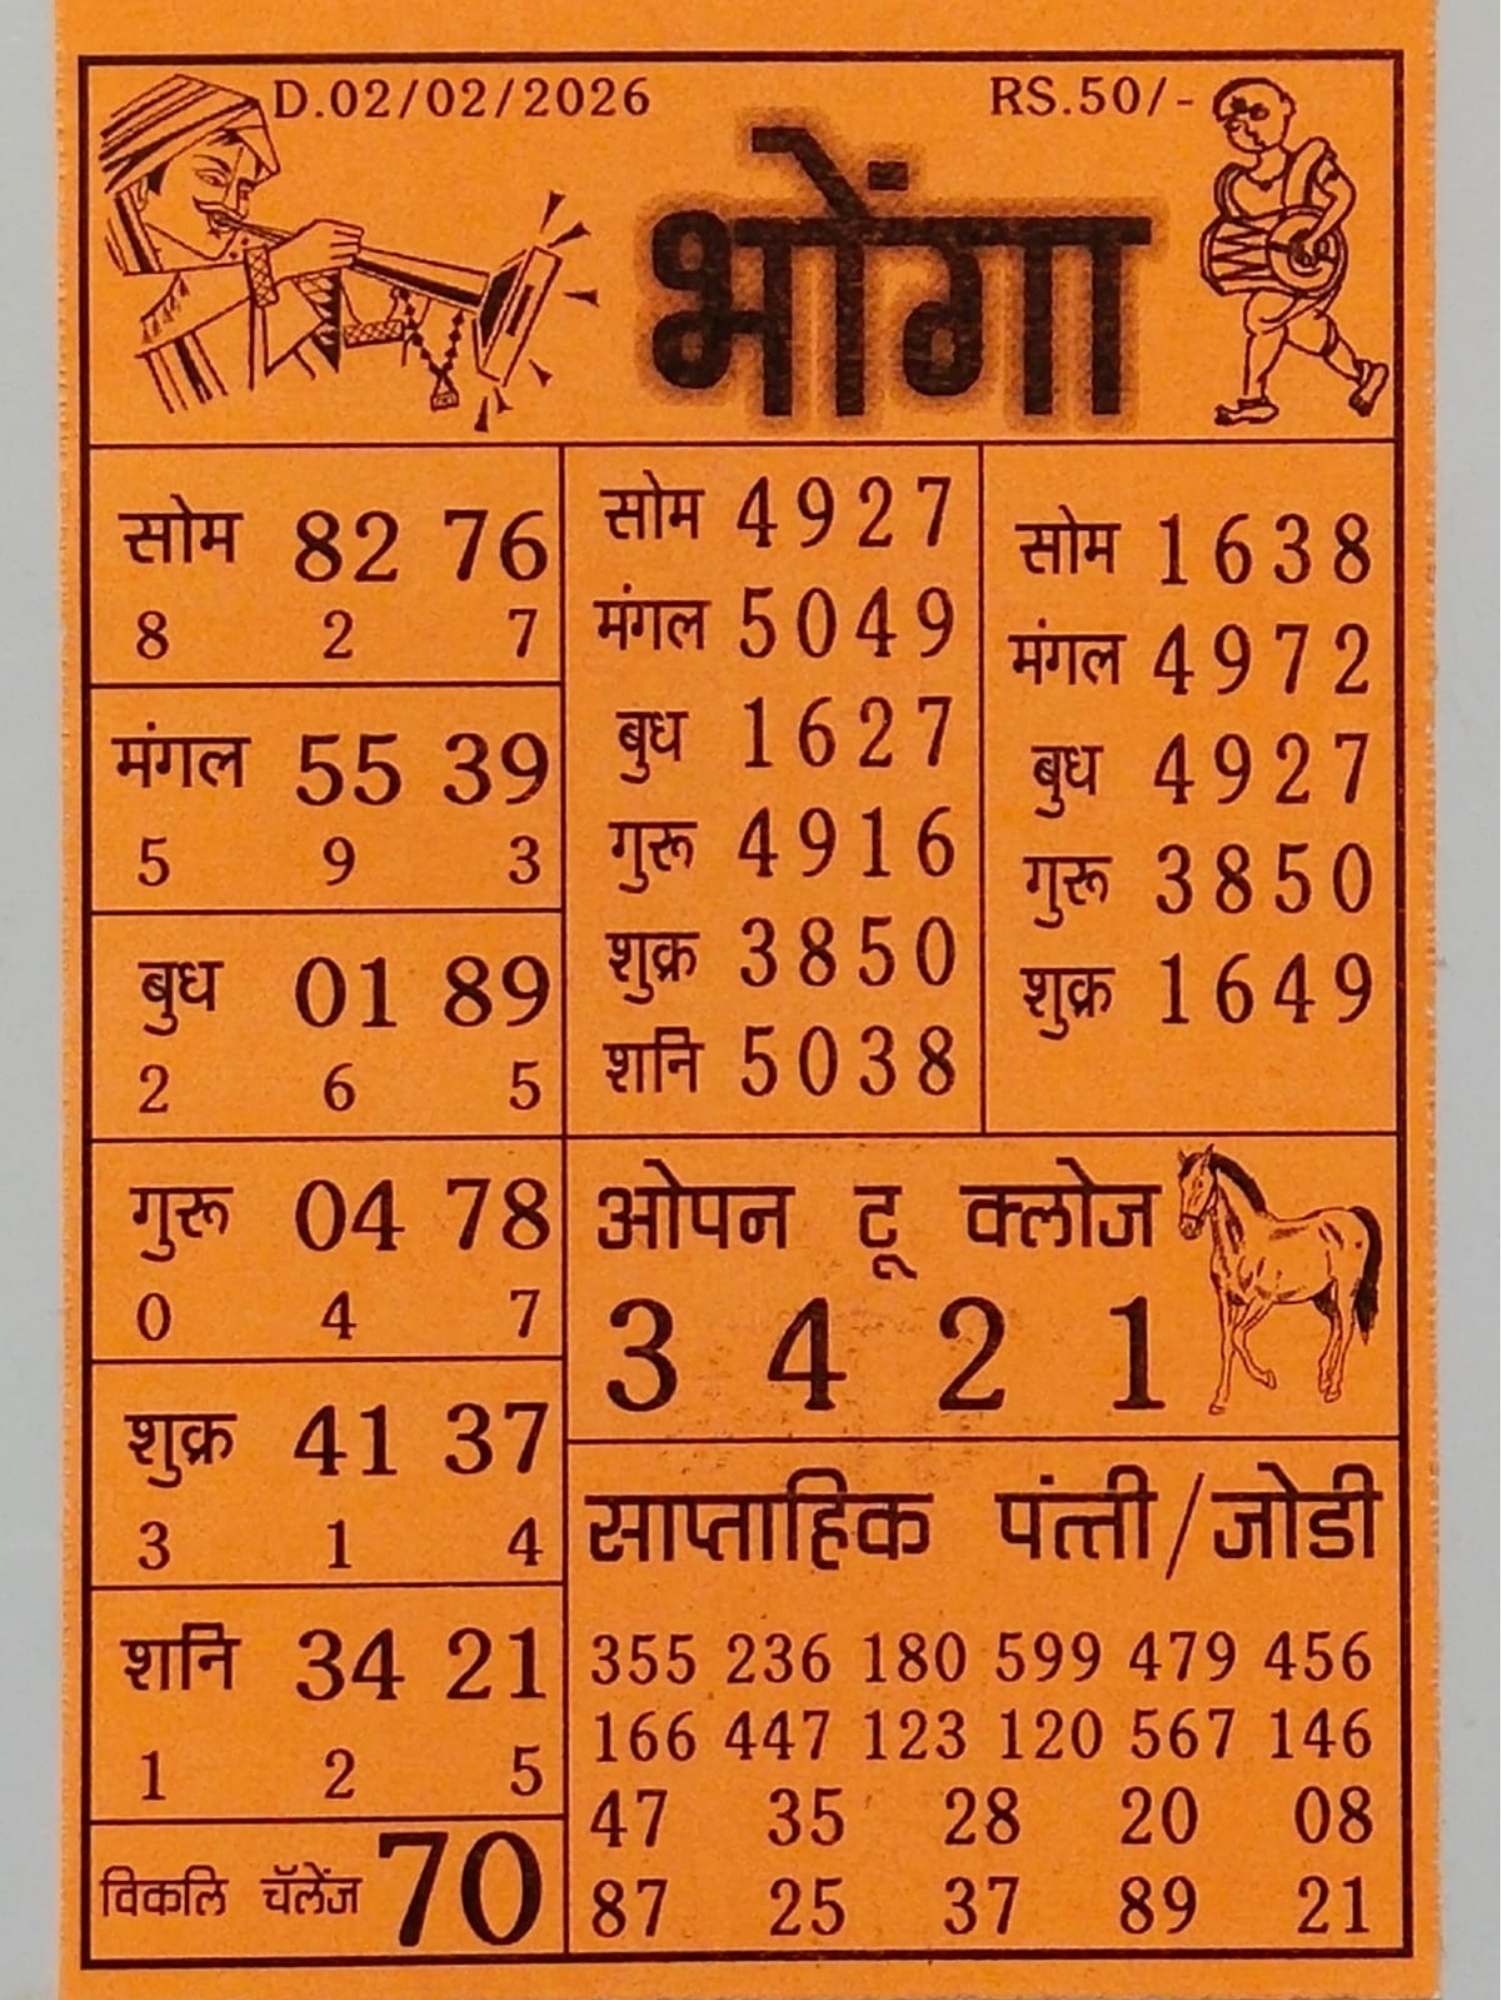 D.02/02/2026 RS.50/-
भोंगा
सोम 82 76
8 2 7
मंगल 55 39
5 9 3
बुध 01 89
2 6 5
गुरू 04 78
0 4 7
शुक्र 41 37
3 1 4
शनि 34 21
1 2 5
विकलि चॅलेंज 70
सोम 4927
मंगल 5049
बुध 1627
गुरू 4916
शुक्र 3850
शनि 5038
सोम 1638
मंगल 4972
बुध 4927
गुरू 3850
शुक्र 1649
ओपन टू क्लोज
3 4 2 1
साप्ताहिक पंत्ती/जोडी
355 236 180 599 479 456
166 447 123 120 567 146
47 35 28 20 08
87 25 37 89 21